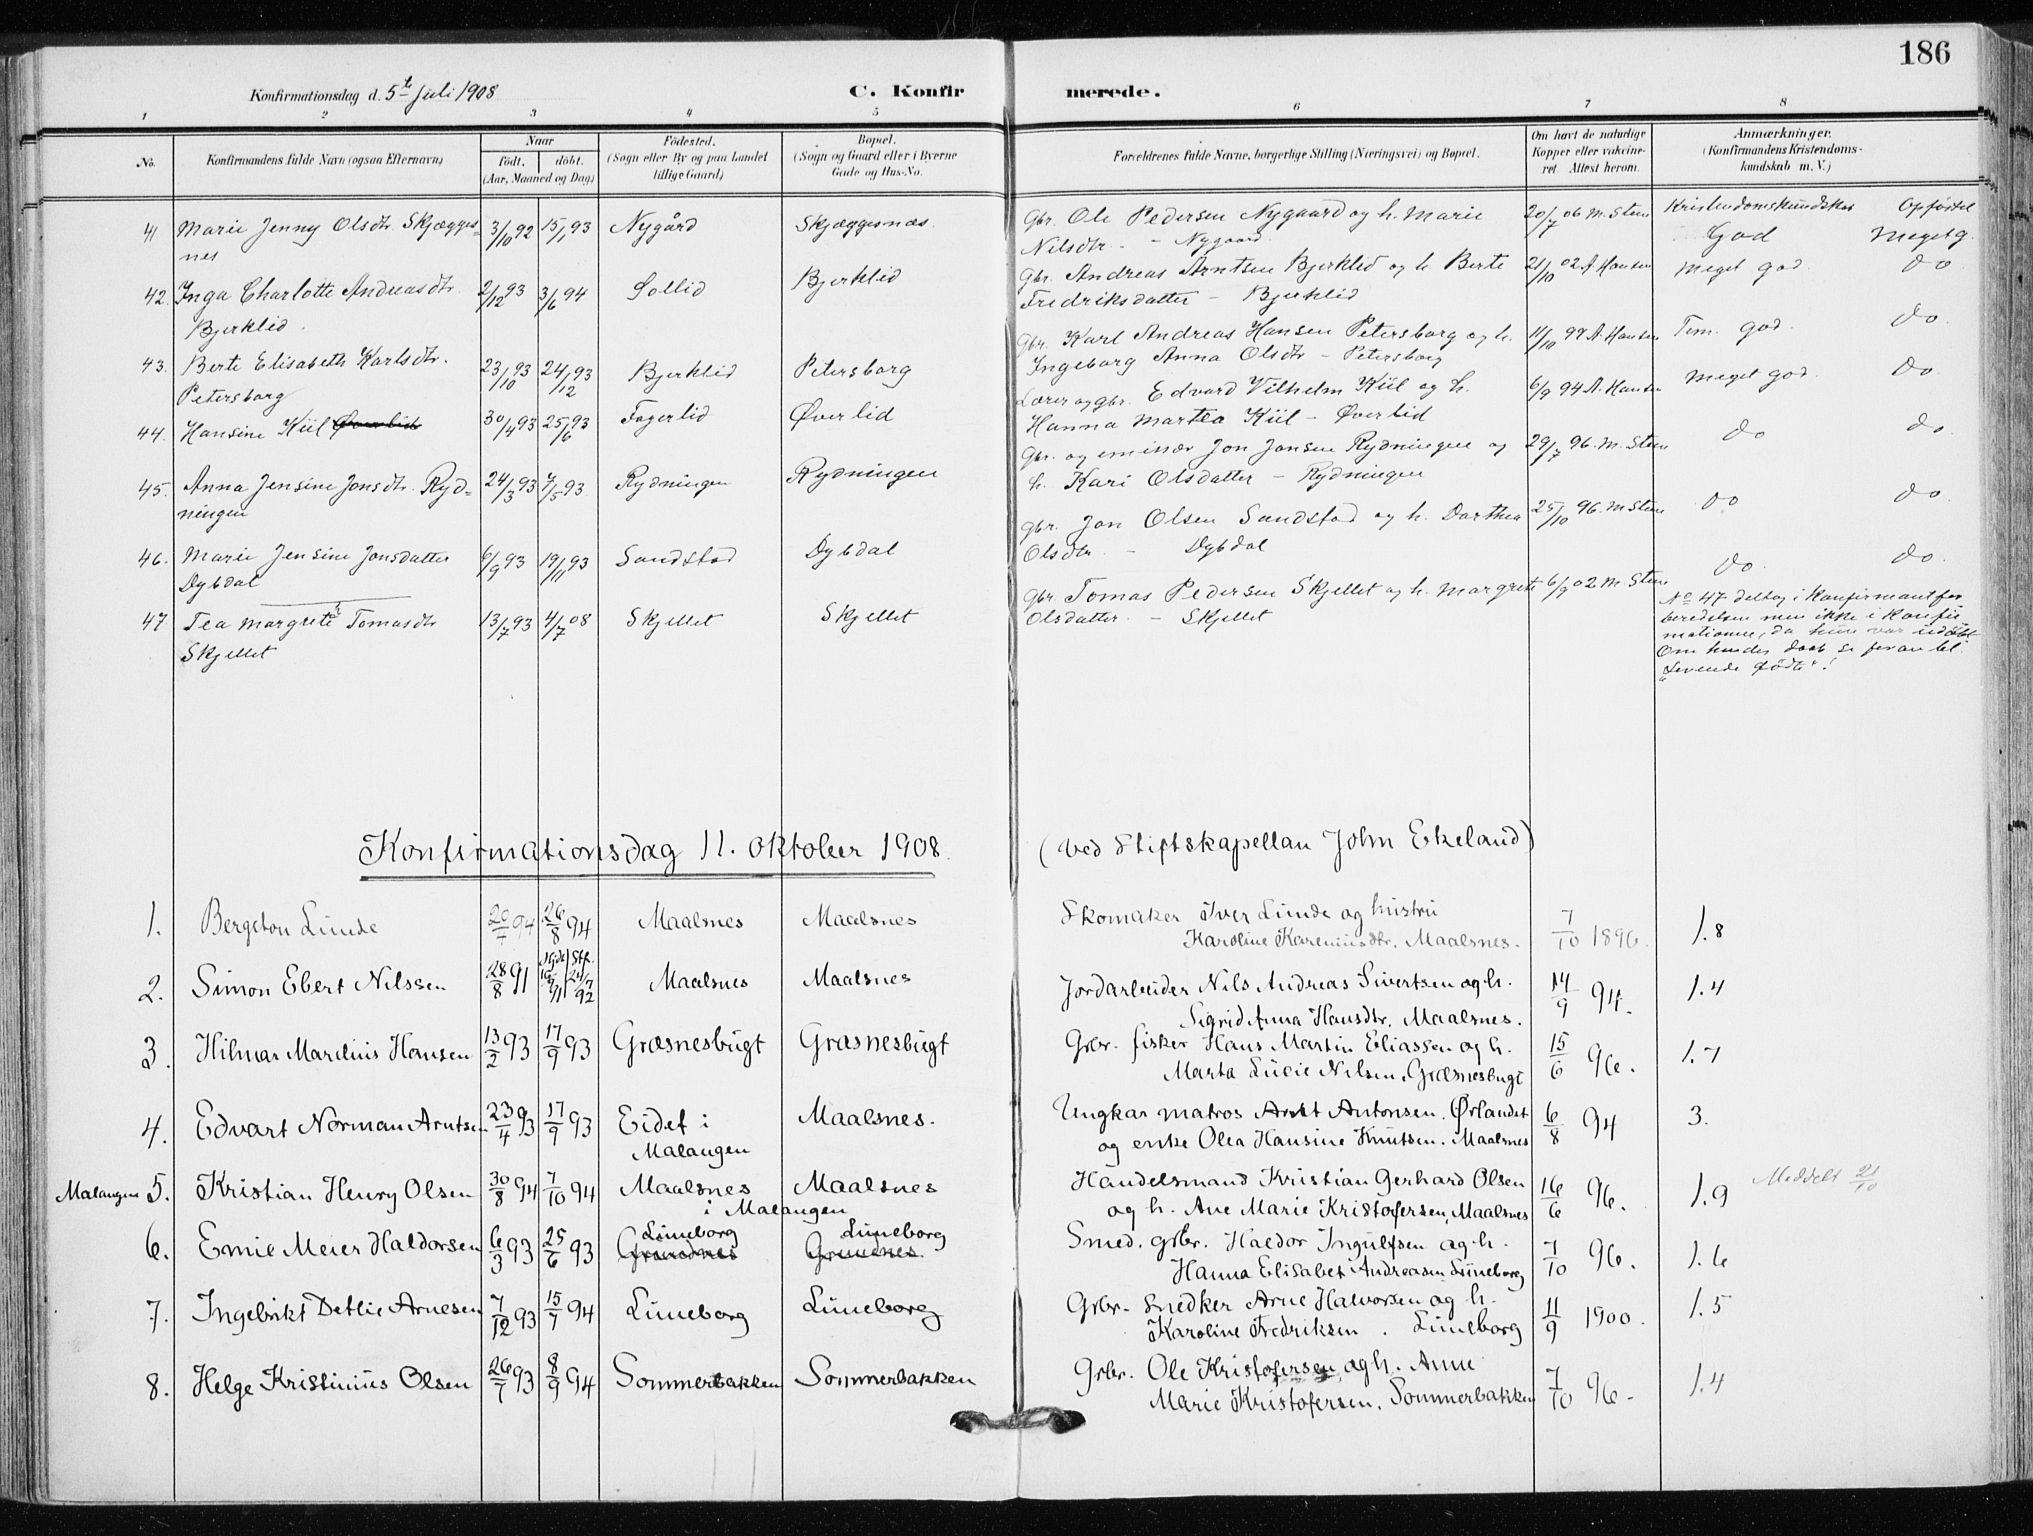 186
Konfirmationsdag d. 5te Juli 1908
C. Konfir merede.
1 2 3 4 5 6 7 8
No.
Konfirmandens fulde Navn (ogsaa Efternavn)
Naar
født. døbt.
(Aar, Maaned og Dag)
Fødested.
(Sogn eller By og paa Landet
tillige Gaard)
Bopæl.
(Sogn og Gaard eller i Byerne
Gade og Hus-No.
Forældrenes fulde Navne, borgerlige Stilling (Næringsvei) og Bopæl.
Om havt de naturlige
Kopper eller vakcine-
ret Attest herom.
Anmærkninger.
(Konfirmandens Kristendoms-
kundskab m. V.)
Kristendomskundskab Opførsel
41 Marie Jenny Olsdtr. Skjægges= 3/10 92 15/1 93 Nygård Skjæggesnæs. Gbr. Ole Pedersen Nygaard og h. Marie 20/7 06 M. Steen God Meget g.
nes Nilsdtr. - Nygaard
42. Inga Charlotte Andreasdtr. 2/12 93 3/6 94 Sollid Bjerklid Gbr. Andreas Arntsen Bjerklid og h. Berte 21/10 02 A Hansen Meget god. do
Bjerklid. Fredriksdatter - Bjerklid
43. Berte Elisabeth Karlsdtr. 23/10 93 24/12 93 Bjerklid Petersborg Gbr. Karl Andreas Hansen Petersborg og h. 11/10 99 A. Hansen Tem. god. do
Petersborg Ingeborg Anna Olsdtr - Petersborg
44. Hansine Kiil Øverlid 30/4 93 25/6 93 Fagerlid Øverlid Lærer og gbr. Edvard Vilhelm Kiil og h. 6/9 94 A. Hansen Meget god. do.
Hanna Martea Kiil - Øverlid
45. Anna Jensine Jonsdtr. Ryd= 24/3 93 7/5 93 Rydningen Rydningen Gbr. og emissær Jon Jonsen Rydningen og 29/7 96. M. Steen do do.
ningen h. Kari Olsdatter - Rydningen
46. Marie Jensine Jonsdatter 6/9 93 19/11 93 Sandstad Dybdal Gbr. Jon Olsen Sandstad og h. Dorthea 25/10 96. M Steen do do.
Dybdal Olsdtr. - Dybdal
47 Tea Margrete Tomasdtr 13/7 93 4/7 08 Skjellet Skjellet Gbr. Tomas Pedersen Skjellet og h. Margrete 6/9 02 M. Steen do. do.
Skjellet Olsdatter. - Skjellet
No 47 deltog i Konfirmantfor
beredelsen men ikke i Konfir
mationen, da hun var udøbt
Om hendes daab se foran bl.
"Levende fødte"!
Konfirmationsdag 11. oktober 1908. (ved Stiftskapellan John Ekeland)
1. Bergeton Lunde 94 26/8 94 Maalsnes Maalsnes Skomaker Iver Lunde og hustru 7/10 1896. 1.8
Karoline Kareniusdtr. Maalsnes.
2. Simon Ebert Nilssen 28/8 91 Maalsnes Maalsnes Jordarbeider Nils Andreas Sivertsen og h. 14/9 94. 1.4
Sigrid Anna Hansdtr. Maalsnes.
3. Hilmar Marelius Hansen 13/2 93 17/9 93 Græsnesbugt Græsnesbugt Grbr. fisker Hans Martin Eliassen og h. 15/6 96. 1.7
Marta Lucie Nilsen. Græsnesbugt
4. Edvart Norman Arntsen 23/4 93 17/9 93 Eidet i Maalsnes. Ungkar matros Arnt Antonsen. Ørlandet 6/8 94 3.
Malangen og enke Olea Hansine Knutsen. Maalsnes
Malangen 5. Kristian Henry Olsen 30/8 94 7/10 94 Maalsnes Maalsnes Handelsmand Kristian Gerhard Olsen 16/6 96. 1.9 Meddelt 21/10
i Malangen og h. Ane Marie Kristofersen, Maalsnes
6. Emil Meier Haldorsen 6/3 93 25/6 93 Luneborg Luneborg Smed. grbr. Haldor Ingulfsen og h. 7/10 96. 1.6
Hanna Elisabet Andreasen Luneborg
7. Ingebrikt Detlie Arnesen 7/12 93 15/7 94 Luneborg Luneborg Grbr. Snedker Arne Halvorsen og h. 11/9 1900. 1.5
Karoline Fredriksen. Luneborg
8. Helge Kristinius Olsen 26/7 93 8/9 94 Sommerbakken Sommerbakken Grbr. Ole Kristofersen og h. Anne 7/10 96- 1.4
Marie Kristofersen. Sommerbakken